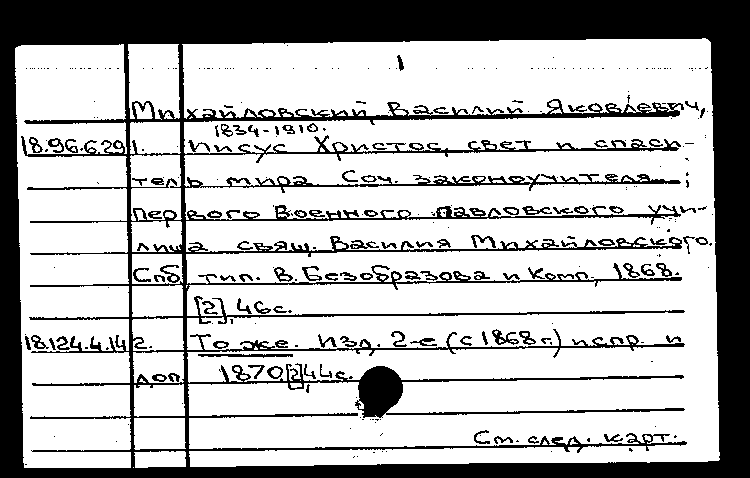 1
Михайловский, Василий Яковлевич,
1834-1910.
18.96.6.29 1. Иисус Христос, свет и спаси-
тель мира. Соч. законоучителя ;
первого Военного Павловского учи-
лища свящ. Василия Михайловского.
Спб, тип. В. Безобразова и Комп., 1868.
[2], 46 с.
18.124.4.14 2. То же. Изд. 2-е (с 1868 г.) испр. и
доп. 1870 [2], 44 с.
См. след. карт.